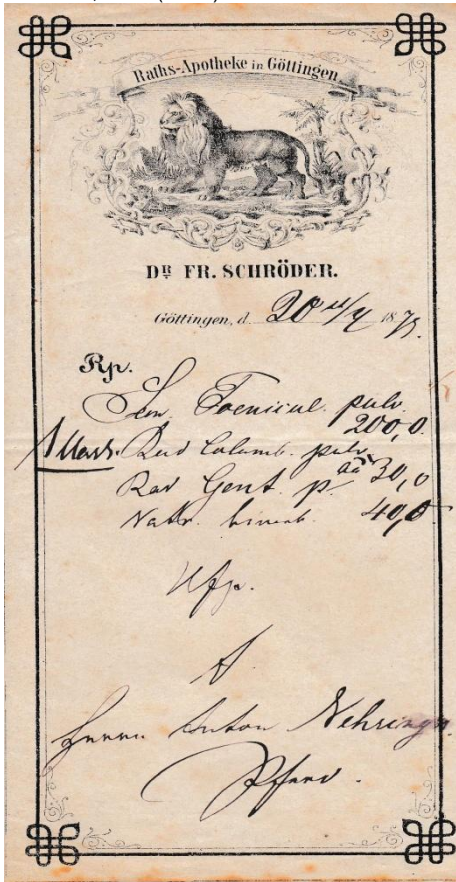 Raths-Apotheke in Göttingen
DR FR. SCHRÖDER.
Göttingen, d. 20 4 1879.
Rp.
Sem. Foenicul. pulv.
200,0.
1 Mark. Rad Colomb. pulv.
āā 30,0
Rad Gent. p.
Natr. 40,0
Mfp.
Herrn Anton Nehring
Pferd.